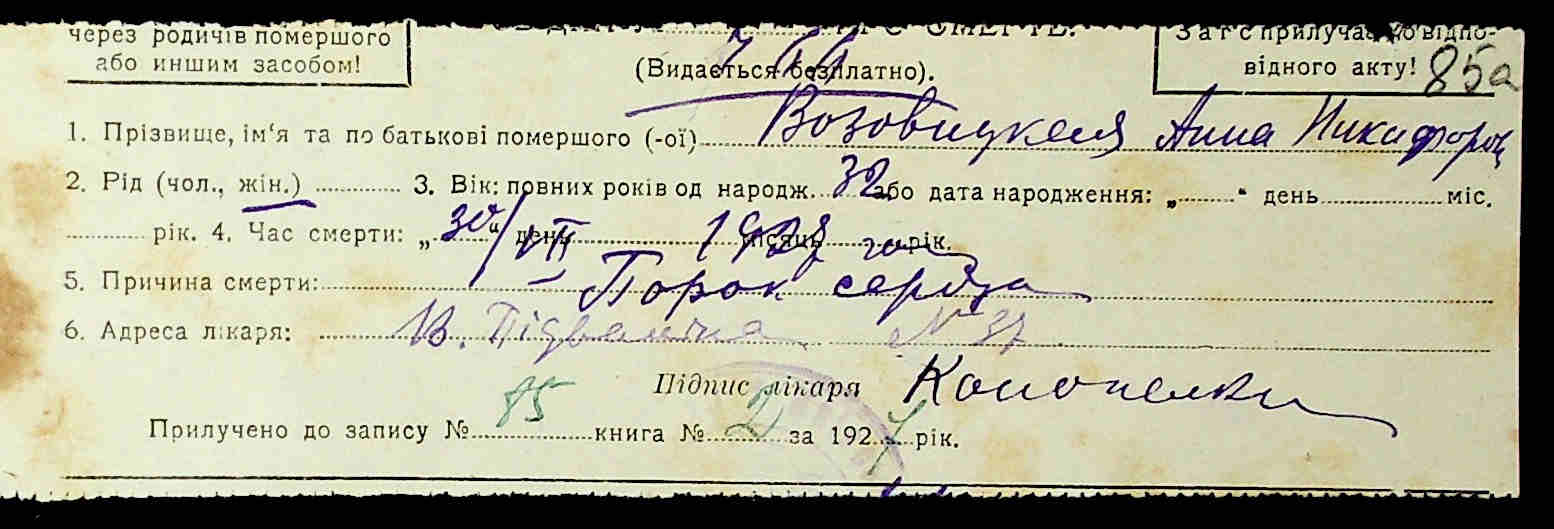 через родичів помершого
або иншим засобом!
ПРО СМЕРТЬ.
(Видається безплатно).
Загс прилучає до відпо-
відного акту! 85а
1. Прізвище, ім'я та по батькові помершого (-ої) Возовицкая Анна Никифоров
2. Рід (чол., жін.) 3. Вік: повних років од народж. 32 або дата народження: „ “ день міс.
рік. 4. Час смерти: „30“ день/VII місяць 1927 рік.
5. Причина смерти: Порок сердца
6. Адреса лікаря: В. Підвальна № 37
Підпис лікаря
Прилучено до запису № 85 книга № 2 за 1927 рік.